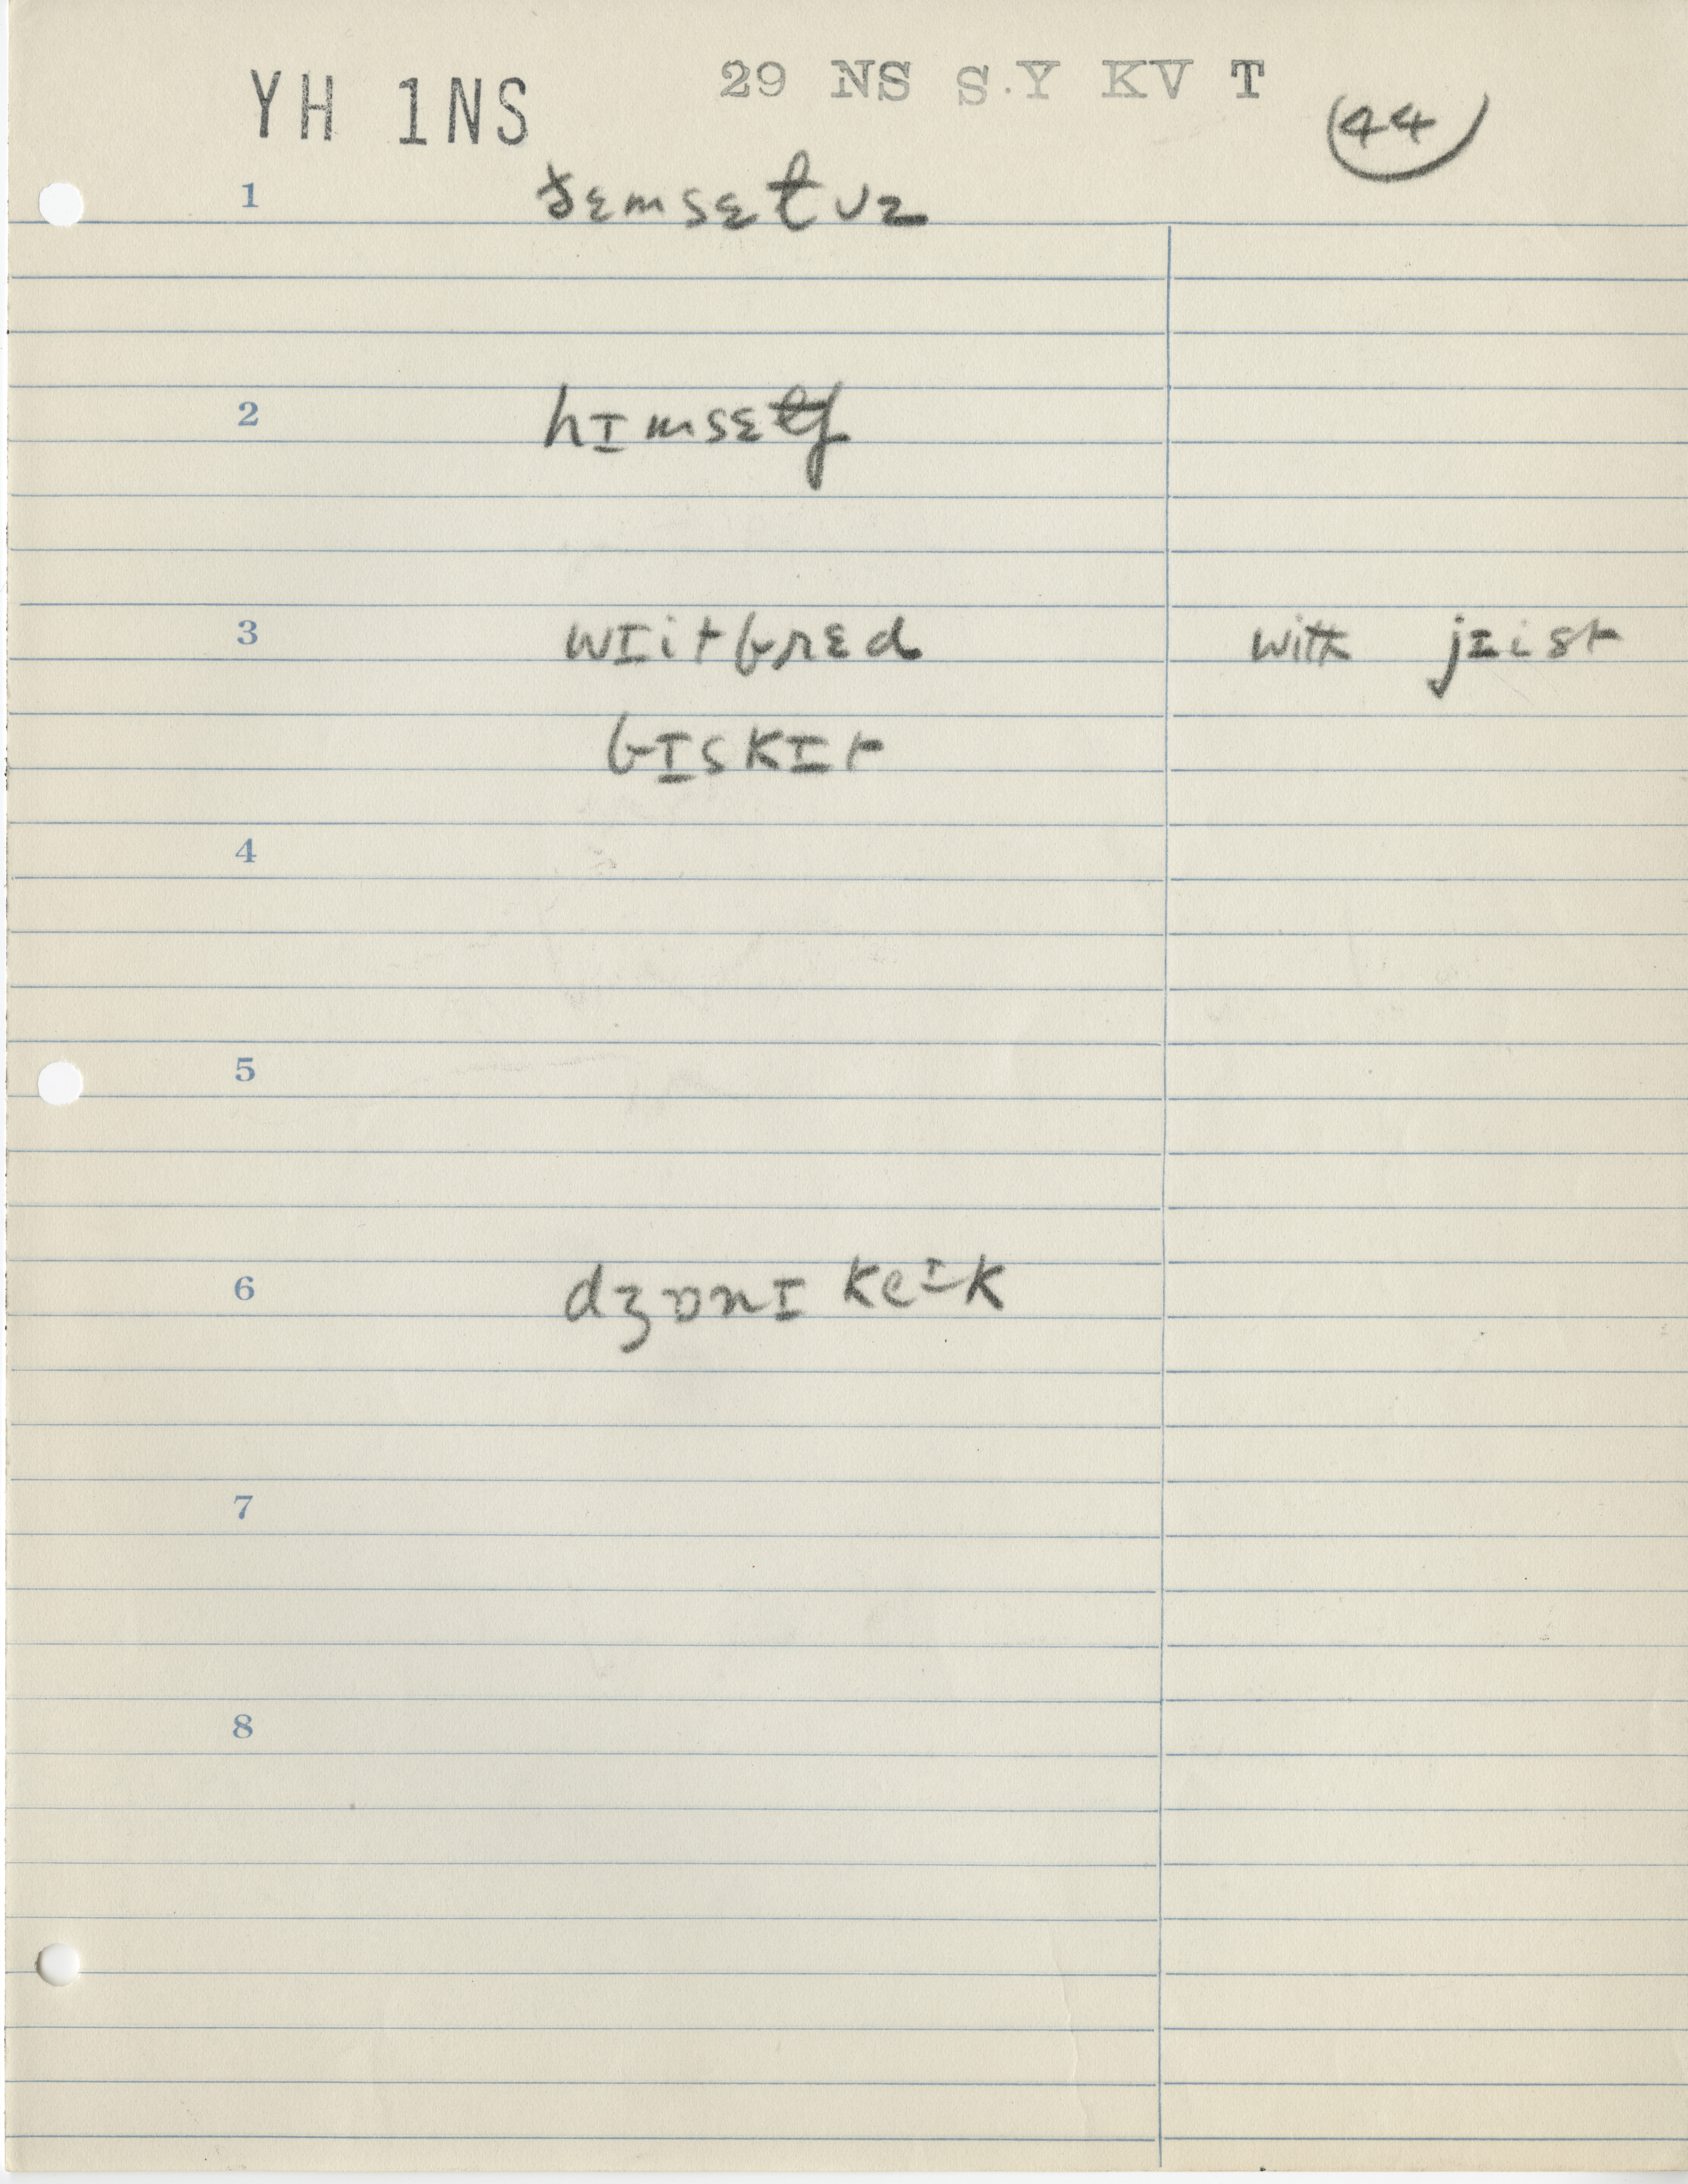 YH 1NS 29 NS S.Y KV T
44
1 ðɛmsɛɫvz
2 hɪmsɛɫf
3 wɪitbrɛd with jɪist
bɪskɪt
4
5
6 dʒɒnɪ keɪk
7
8